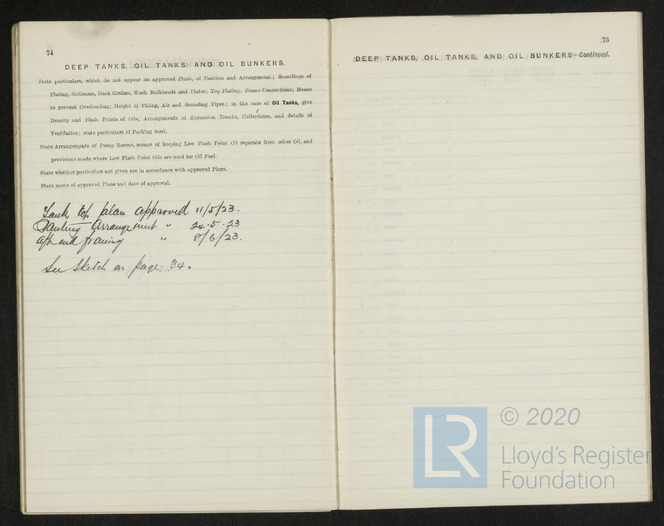 74
DEEP TANKS, OIL TANKS, AND OIL BUNKERS.
State particulars, which do not appear on approved Plans, of Position and Arrangement; Scantlings of
Plating, Stiffeners, Deck Girders, Wash Bulkheads and Plates; Top Plating; Frame Connections; Means
to prevent Overloading; Height of Filling, Air and Sounding Pipes; in the case of Oil Tanks, give
Density and Flash Points of Oils; Arrangements of Expansion Trunks, Cofferdams, and details of
Ventilation; state particulars of Packing used.
State Arrangements of Pump Rooms, means of keeping Low Flash Point Oil separate from other Oil, and
provisions made where Low Flash Point Oils are used for Oil Fuel.
State whether particulars not given are in accordance with approved Plans.
State name of approved Plans and date of approval.
Tank top plan approved 11/5/23.
Arrangement " 24.5.23
Aft end framing " 8/6/23.
See Sketch on page 34.
75
DEEP TANKS, OIL TANKS, AND OIL BUNKERS—Continued.
LR
© 2020
Lloyd's Register
Foundation